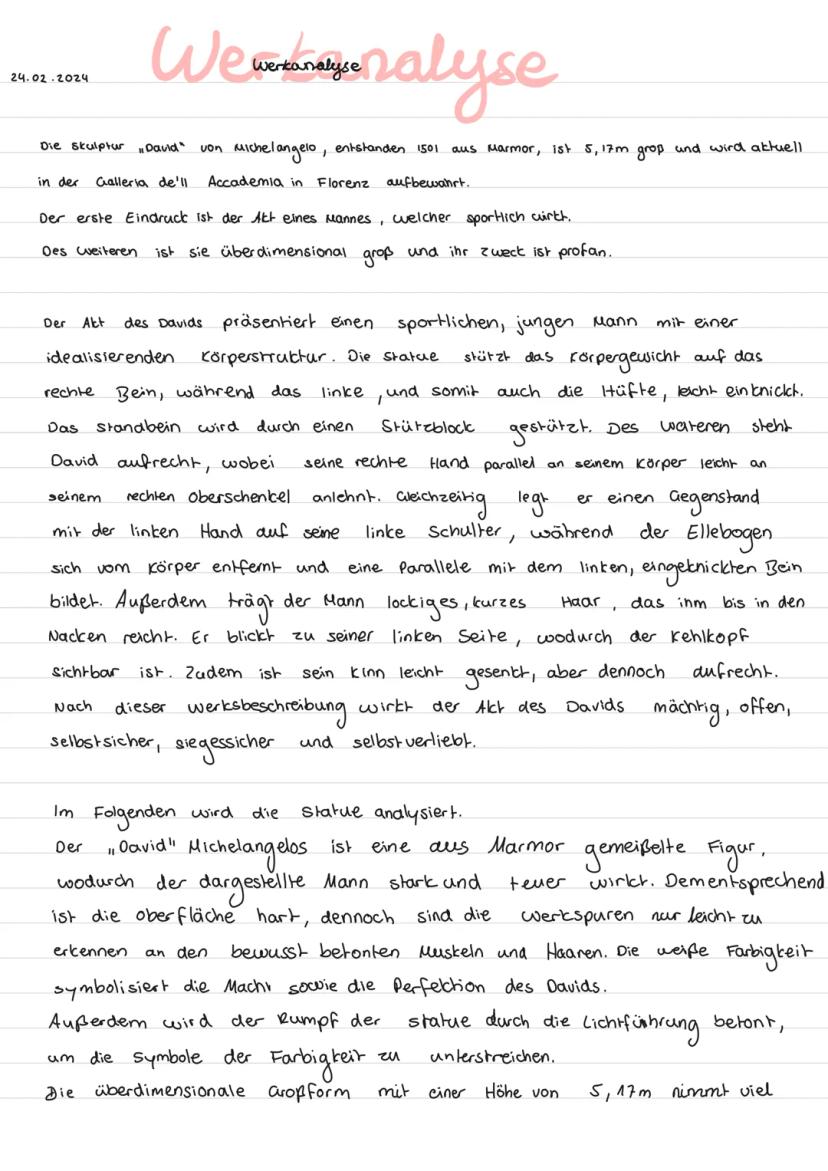 Werkanalyse
24.02.2024
Werkanalyse
Die Skulptur „David“ von Michelangelo, entstanden 1501 aus Marmor, ist 5,17m groß und wird aktuell
in der Galleria de'll Accademia in Florenz aufbewahrt.
Der erste Eindruck ist der Akt eines Mannes, welcher sportlich wirkt.
Des Weiteren ist sie überdimensional groß und ihr Zweck ist profan.
Der Akt des Davids präsentiert einen sportlichen, jungen Mann mit einer
idealisierenden Körperstruktur. Die Statue stützt das Körpergewicht auf das
rechte Bein, während das linke, und somit auch die Hüfte, leicht einknickt.
Das Standbein wird durch einen Stützblock gestützt. Des Weiteren steht
David aufrecht, wobei seine rechte Hand parallel an seinem Körper leicht an
seinem rechten Oberschenkel anlehnt. Gleichzeitig legt er einen Gegenstand
mit der linken Hand auf seine linke Schulter, während der Ellebogen
sich vom Körper entfernt und eine Parallele mit dem linken, eingeknickten Bein
bildet. Außerdem trägt der Mann lockiges, kurzes Haar, das ihm bis in den
Nacken reicht. Er blickt zu seiner linken Seite, wodurch der Kehlkopf
sichtbar ist. Zudem ist sein Kinn leicht gesenkt, aber dennoch aufrecht.
Nach dieser Werksbeschreibung wirkt der Akt des Davids mächtig, offen,
selbstsicher, siegessicher und selbstverliebt.
Im Folgenden wird die Statue analysiert.
Der „David" Michelangelos ist eine aus Marmor gemeißelte Figur,
wodurch der dargestellte Mann stark und teuer wirkt. Dementsprechend
ist die Oberfläche hart, dennoch sind die Werkspuren nur leicht zu
erkennen an den bewusst betonten Muskeln und Haaren. Die weiße Farbigkeit
symbolisiert die Macht sowie die Perfektion des Davids.
Außerdem wird der Rumpf der Statue durch die Lichtführung betont,
um die Symbole der Farbigkeit zu unterstreichen.
Die überdimensionale Großform mit einer Höhe von 5,17m nimmt viel